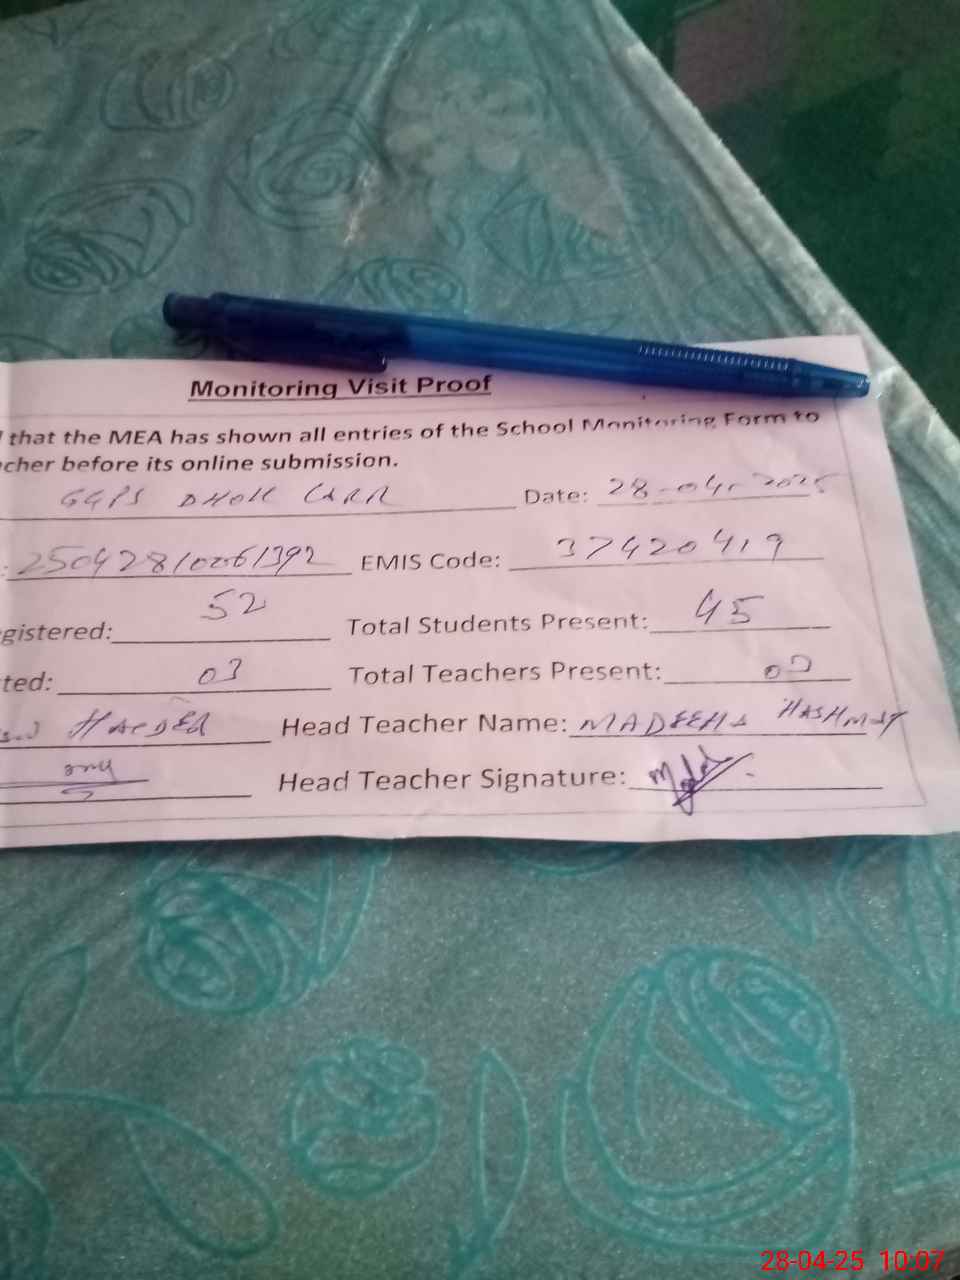 Monitoring Visit Proof
that the MEA has shown all entries of the School Monitoring Form to
cher before its online submission.
GGPS DHOK Date: 28-04-2025
: 25042810061392 EMIS Code: 37420419
gistered: 52 Total Students Present: 45
ted: 03 Total Teachers Present: 03
HAEDER Head Teacher Name: MADEEHA HASHMAT
Head Teacher Signature:
28-04-25 10:07